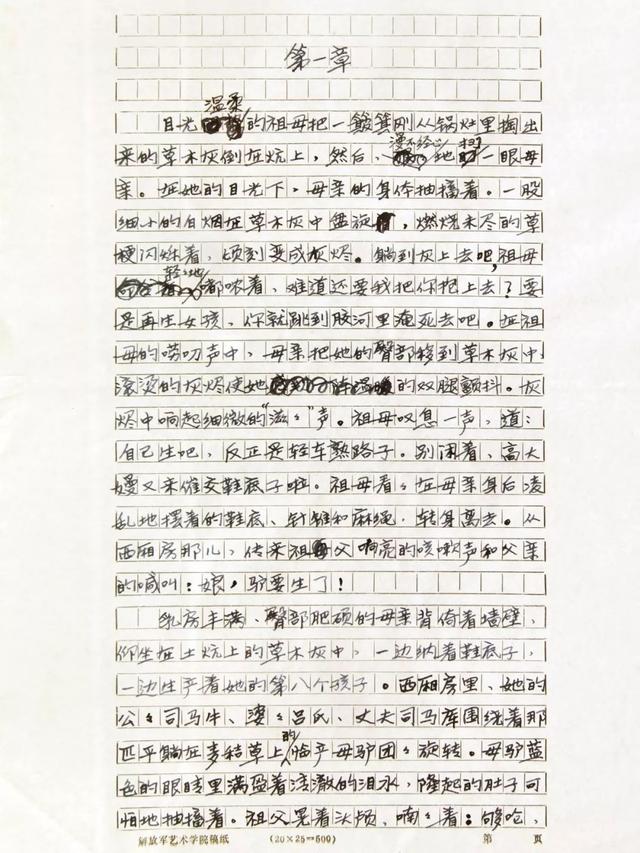 第一章
目光温柔的祖母把一簸箕刚从锅灶里掏出
来的草木灰倒在炕上，然后，漫不经心地扫一眼母
亲。在她的目光下，母亲的身体抽搐着。一股
细小的白烟在草木灰中盘旋着，燃烧未尽的草
梗闪烁着，顷刻变成灰烬。躺到灰上去吧，祖母
轻轻地嘟哝着，难道还要我把你抱上去？要
是再生女孩，你就跳到胶河里淹死去吧。在祖
母的唠叨声中，母亲把她的臀部移到草木灰中
滚烫的灰烬使她的双腿颤抖。灰
烬中响起细微的“滋〻”声。祖母叹息一声，道：
自己生吧，反正是轻车熟路子。别闹着，高大
嫂又来催交鞋底子啦。祖母看〻在母亲身后凌
乱地摆着的鞋底、针锥和麻绳，转身离去。从
西厢房那儿，传来祖父响亮的咳嗽声和父亲
的喊叫：娘，驴要生了！
乳房丰满、臀部肥硕的母亲背倚着墙壁，
仰坐在土炕上的草木灰中，一边纳着鞋底子，
一边生产着她的第八个孩子。西厢房里、她的
公〻司马牛、婆〻吕氏、丈夫司马库围绕着那
匹平躺在麦秸草上的临产母驴团〻旋转。母驴蓝
色的眼睛里满盈着清澈的泪水，隆起的肚子可
怕地抽搐着。祖父晃着头颅、喃〻着：够呛，
解放军艺术学院稿纸 （20×25=500） 第 页